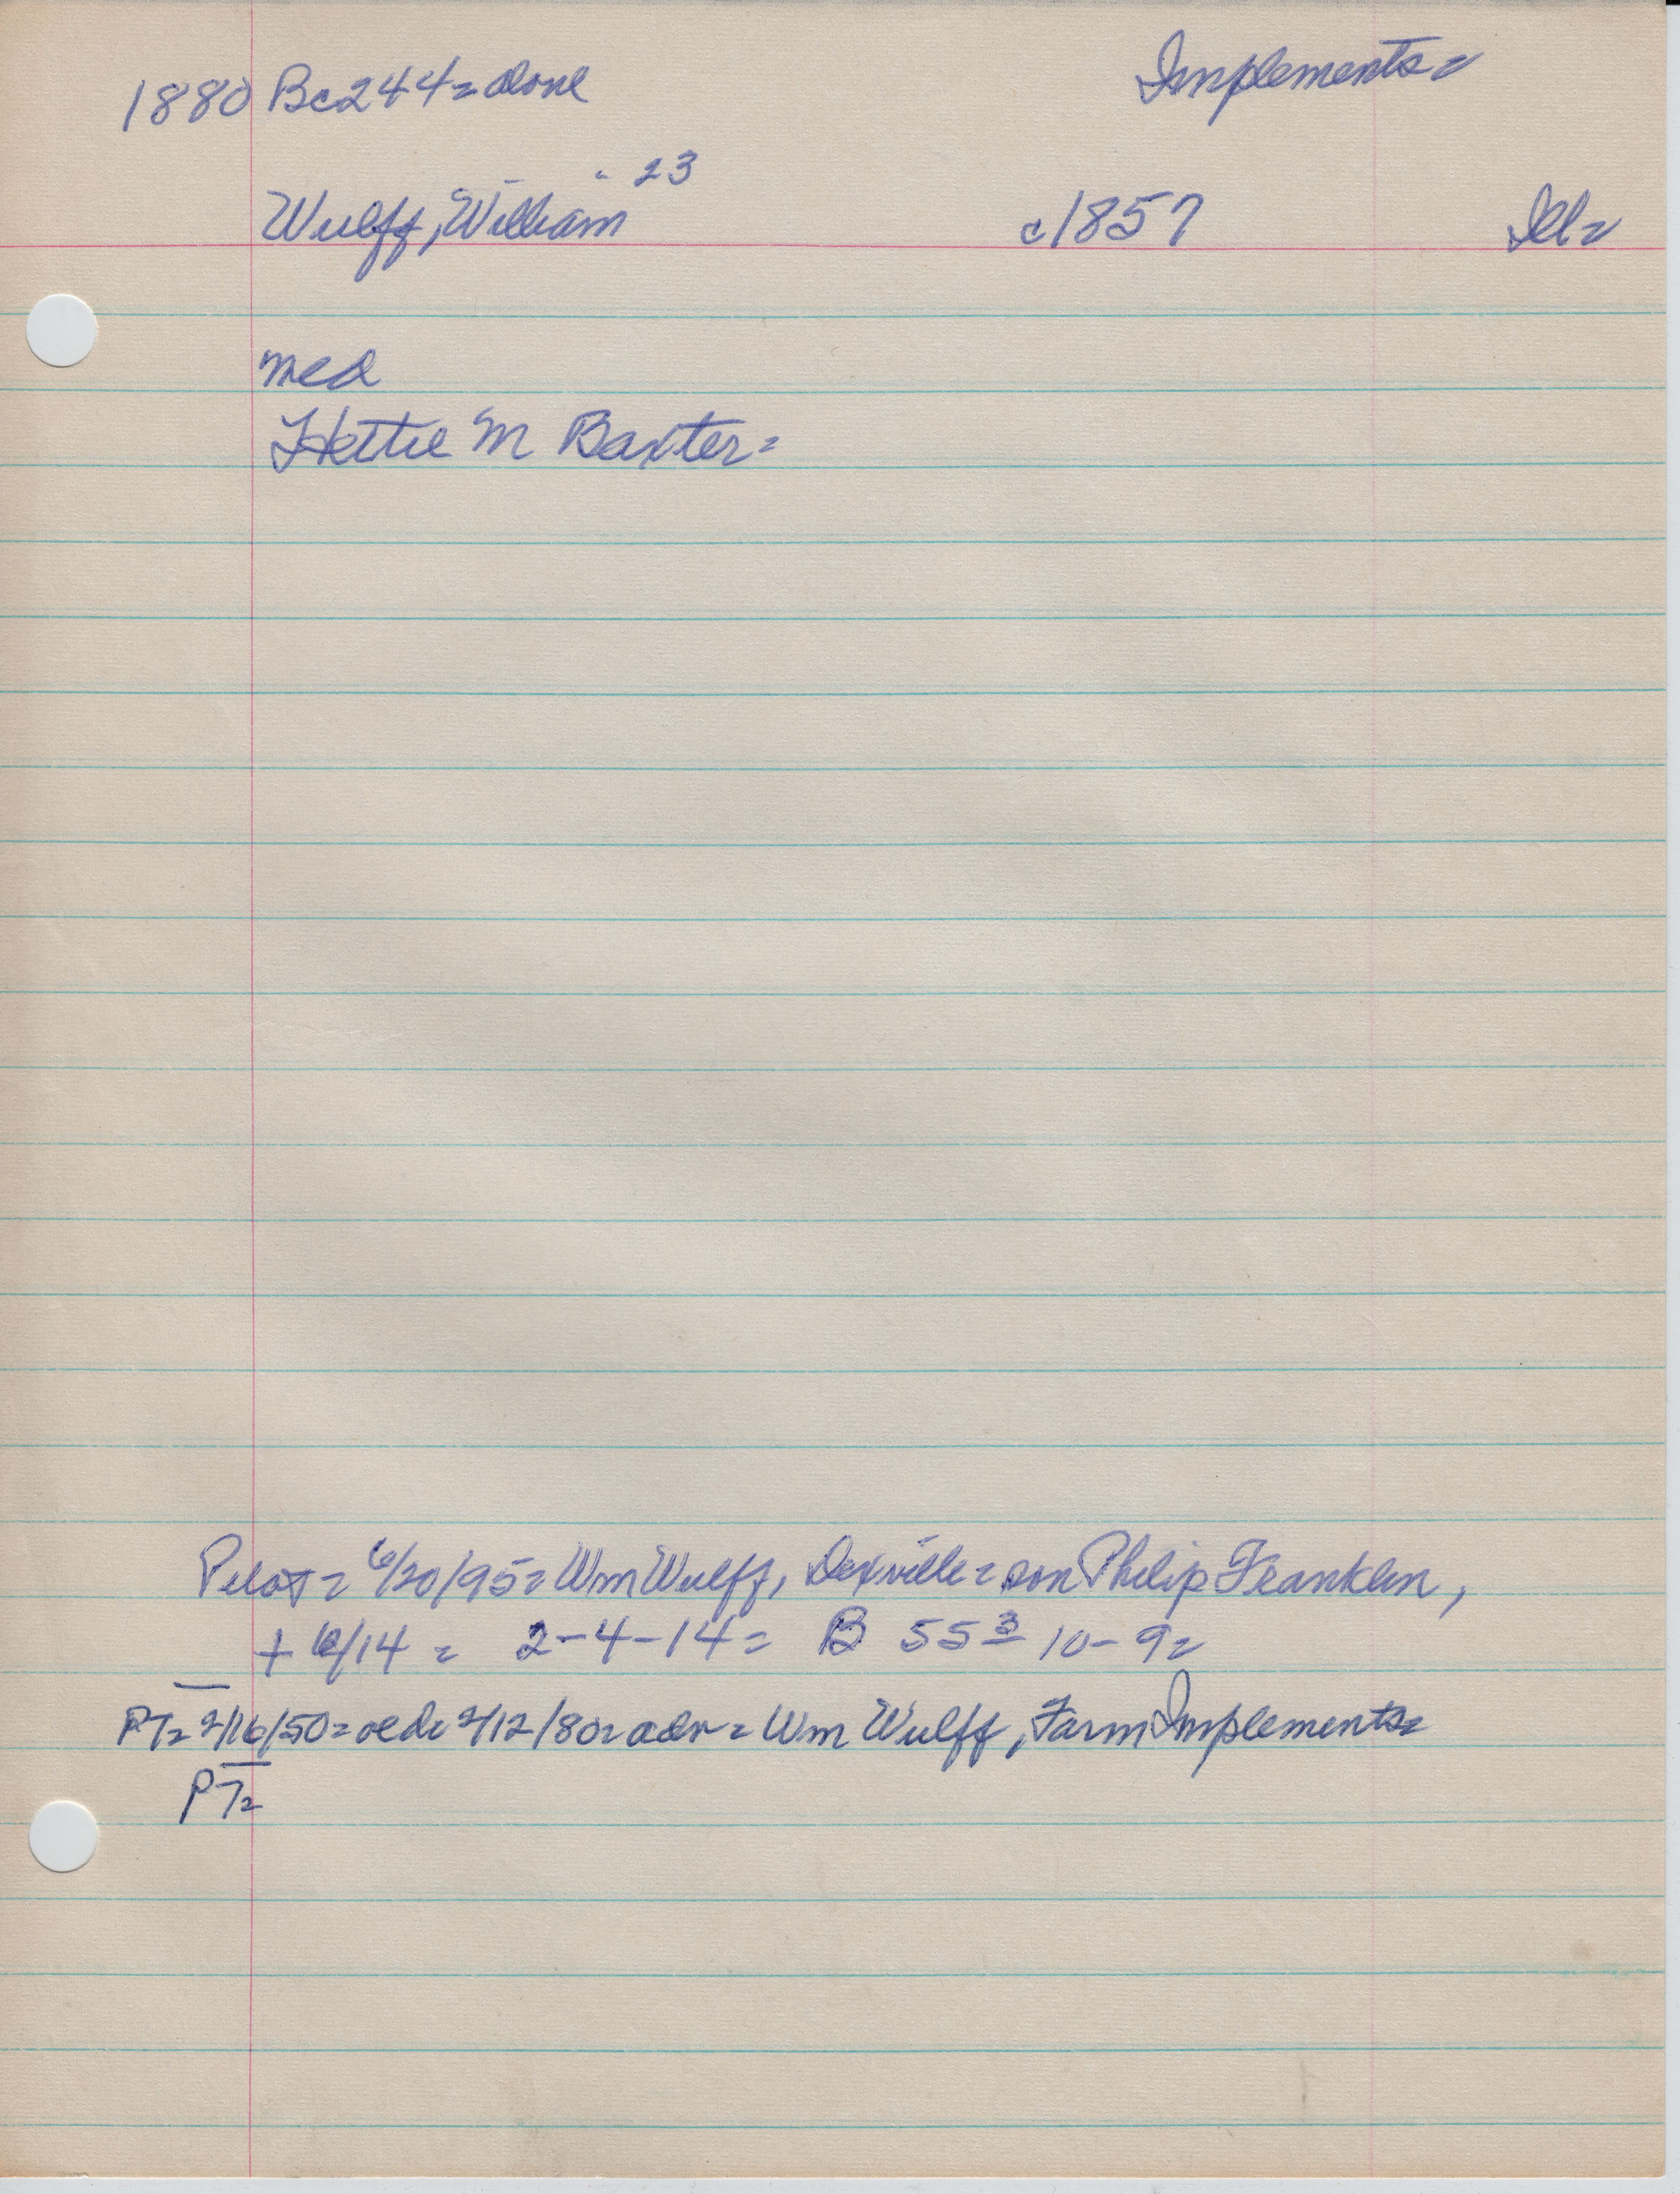 1880 Bc244= alone Implements=
Wulff, William 23 c1857 Ill=
med
Hettie M Baxter=
Pilot= 6/20/95= Wm Wulff, Dexville= son Philip Franklin,
+ 6/14 = 2-4-14= B 55 3 10-9=
PT= 2/16/50= 2/12/80= adv= Wm Wulff, Farm Implements=
PT=